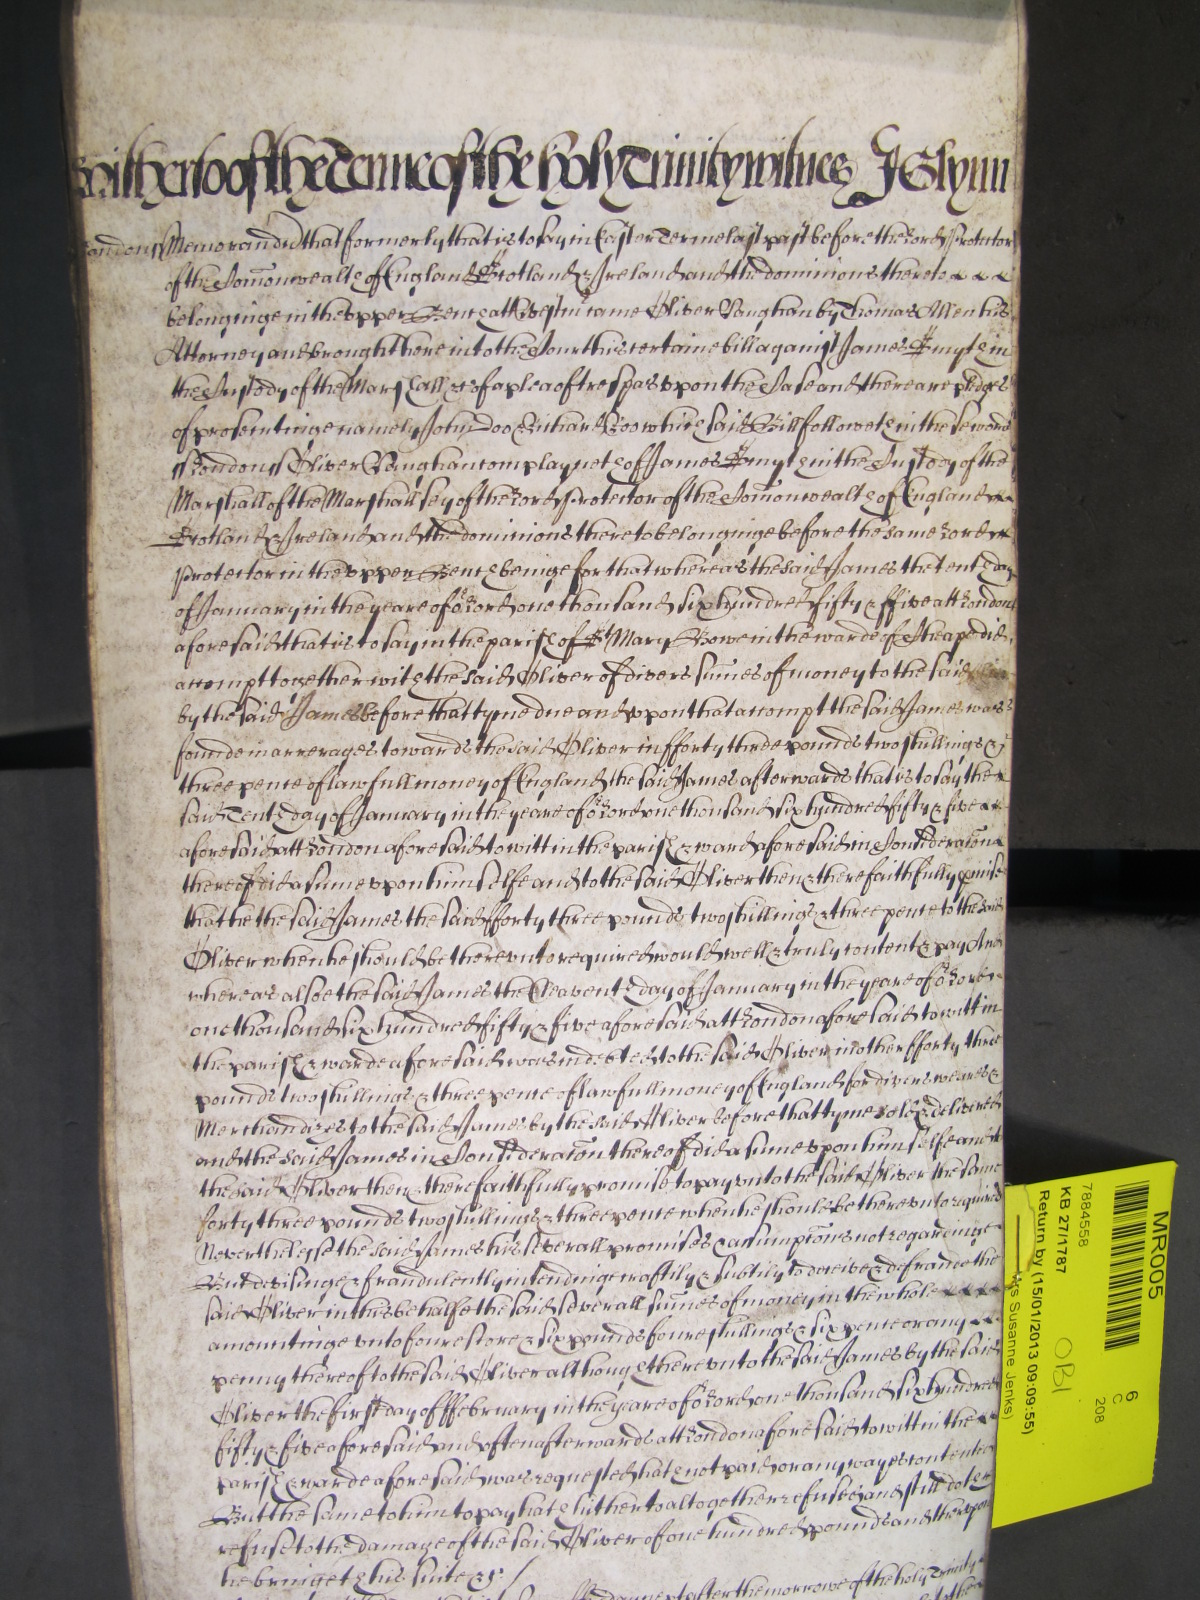 Hitherto of the Terme of the holy Trinity witnes J Glynn
London ss Memorand that formerly that is to say in Easter Terme last past before the Lord Protector
of the Comonwealth of England Scotland & Ireland and the dominions thereto
belonginge in the upper Bench att Westm came Oliver Vaughan by Thomas Allen his
Attorney and brought here into the Court his certaine bill against James Smyth in
the Custody of the Marshall &c of a plea of trespas upon the Case and there are pledges
of prosecutinge namely John Doo & Richard Roo which said Bill followeth in these words
ss London ss Oliver Vaughan complayneth of James Smyth in the Custody of the
Marshall of the Marshallsey of the Lord Protector of the Comonwealth of England
Scotland & Ireland and the dominions thereto belonginge before the same Lord
Protector in the upper Bench beinge for that whereas the said James the tenth day
of January in the yeare of or Lord one thousand six hundred fifty & ffive att London
aforesaid that is to say in the parish of St Mary Bowe in the warde of Cheape did
accompt together with the said Oliver of divers sumes of money to the said
by the said James before that tyme due and upon that accompt the said James was
founde in arrerages towards the said Oliver in fforty three pounds two shillings &
three pence of lawfull money of England the said James afterwards that is to say the
said Tenth day of January in the yeare of or Lord one thousand six hundred fifty & five
aforesaid att London aforesaid to witt in the parish & ward aforesaid in Consideracon
thereof did assume upon himselfe and to the said Oliver then & there faithfully pmise
that he the said James the said fforty three pounds two shillings & three pence to the said
Oliver when he should be thereunto required would well & truly content & pay And
whereas alsoe the said James the Eleaventh day of January in the yeare of or Lord
one thousand six hundred fifty & five aforesaid att London aforesaid to witt in
the parish & warde aforesaid was indebted to the said Oliver in other fforty three
pounds two shillings & three pence of lawfull money of England for divers weares &
Merchandizes to the said James by the said Oliver before that tyme sold & delivered
and the said James in Consideracon thereof did assume upon himselfe and to
the said Oliver then & there faithfully promise to pay unto the said Oliver the same
forty three pounds two shillings & three pence when he should be thereunto required
Neverthelesse the said James his severall promises & assumptons not regardinge
But devisinge & fraudulently intendinge craftily & subtily to deceive & defraude the
said Oliver in this behalfe the said severall sumes of money in the whole
amountinge unto foure score & six pounds foure shillings & six pence or any
penny thereof to the said Oliver although thereunto the said James by the said
Oliver the first day of ffebruary in the yeare of or Lord one thousand six hundred
fifty & five aforesaid and often afterwards att London aforesaid to witt in the
parish & warde aforesaid was requested hath not paid or any wayes contented
But the same to him to pay hath hitherto altogether refused and still doth
refuse to the damage of the said Oliver of one hundred pounds and thereupon
he bringeth his suite &c
next after the morrowe of the holy Trinity
MR005
6
C
208
7884558
KB 27/1787
Return by (15/01/2013 09:09:55)
Mrs Susanne Jenks)
OBI